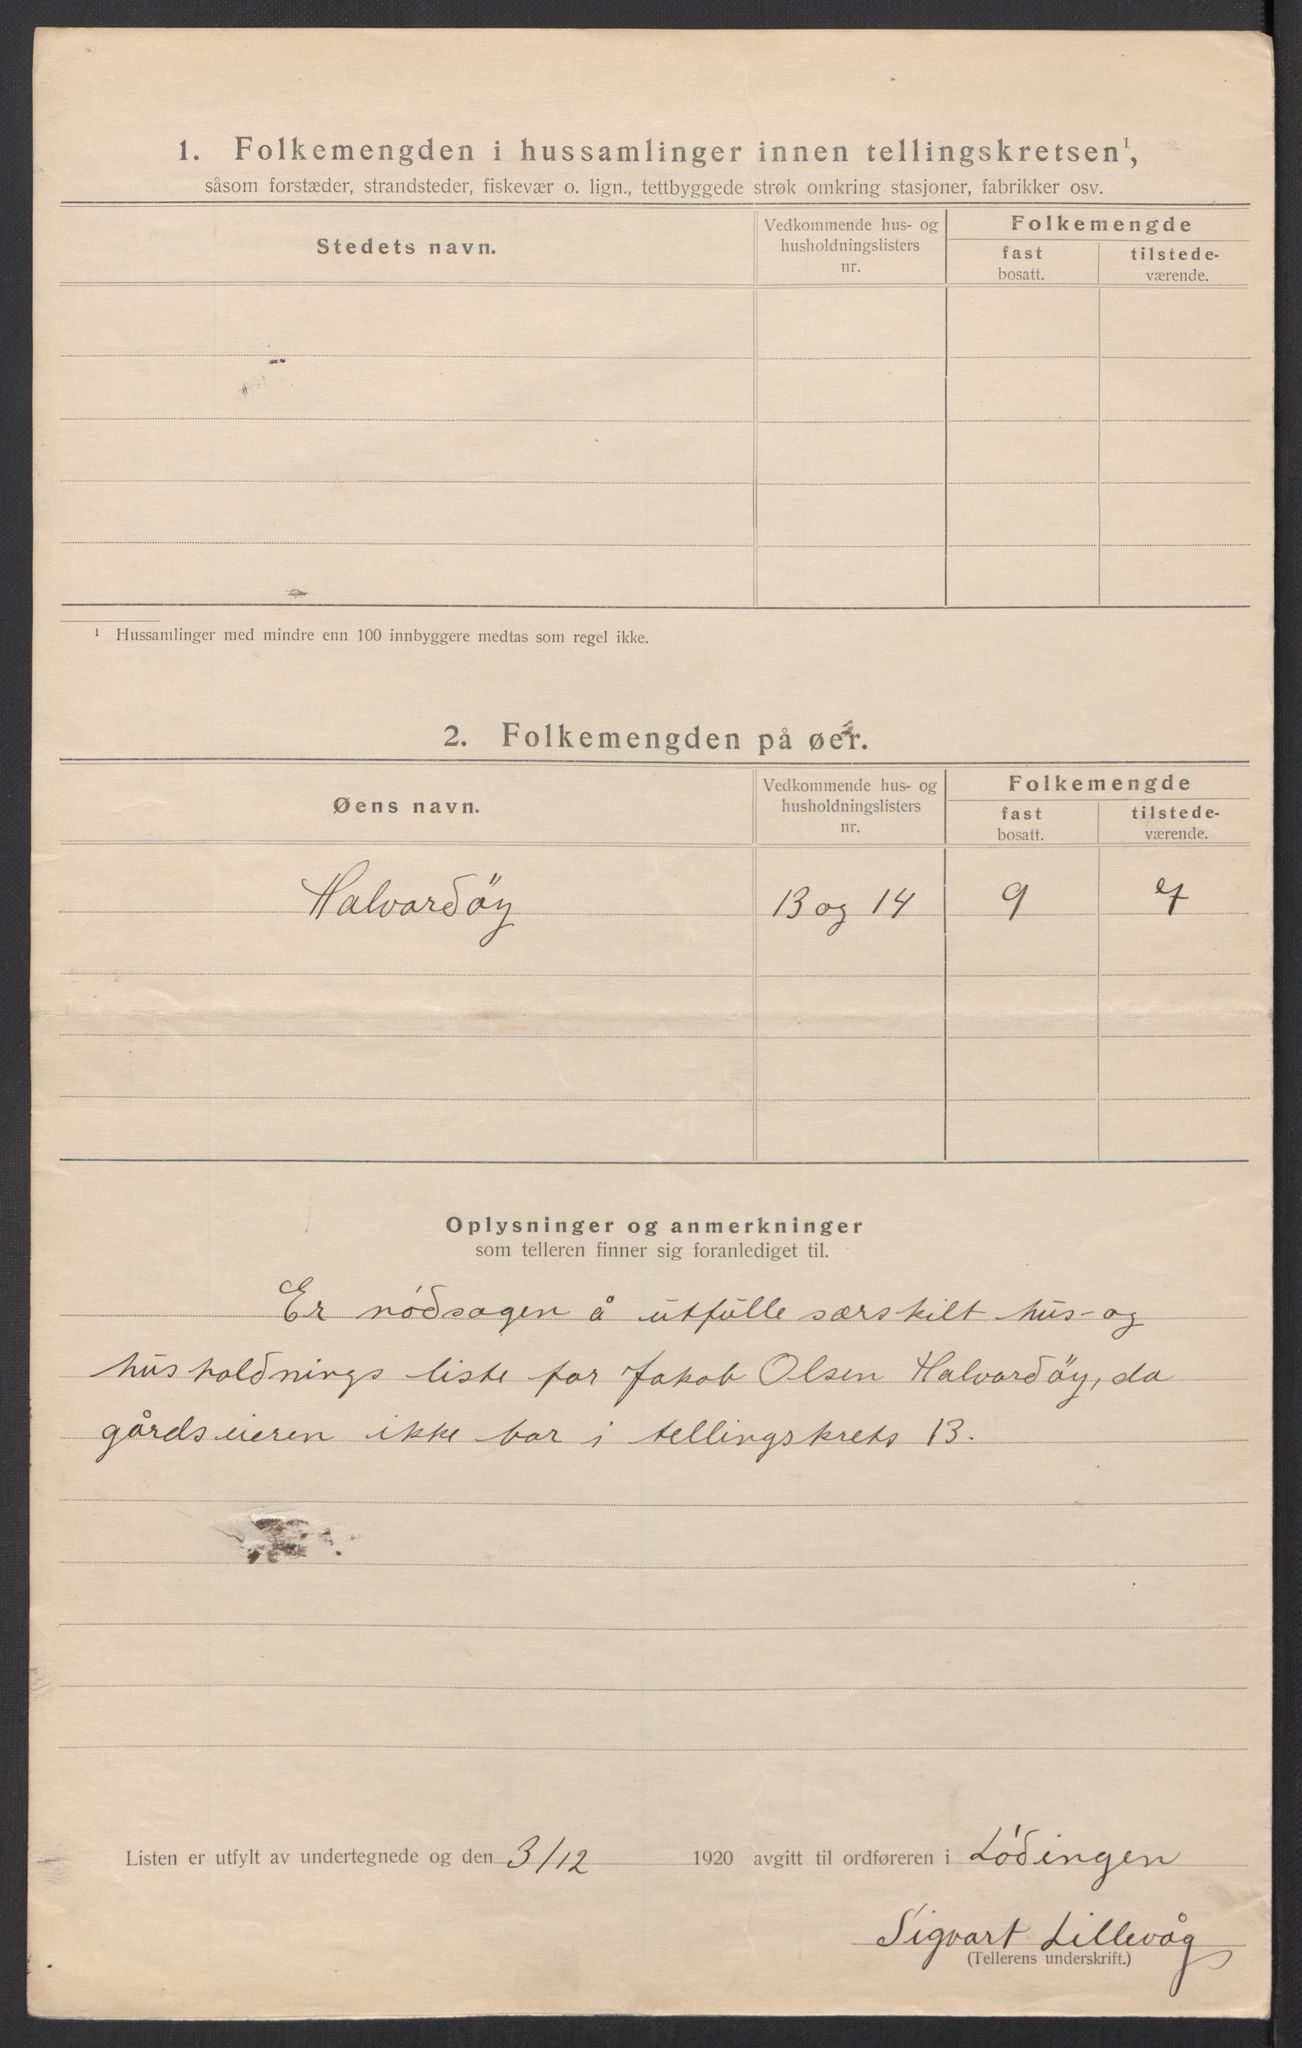 1. Folkemengden i hussamlinger innen tellingskretsen¹,
såsom forstæder, strandsteder, fiskevær o. lign., tettbyggede strøk omkring stasjoner, fabrikker osv.
Stedets navn.
Vedkommende hus- og
husholdningslisters
nr.
Folkemengde
fast
bosatt.
tilstede-
værende.
¹ Hussamlinger med mindre enn 100 innbyggere medtas som regel ikke.
2. Folkemengden på øer.
Øens navn.
Vedkommende hus- og
husholdningslisters
nr.
Folkemengde
fast
bosatt.
tilstede-
værende.
Halvardöy 13 og 14 9 7
Oplysninger og anmerkninger
som telleren finner sig foranlediget til.
Er nódsagen å utfülle særskilt hus- og
husholdnings liste for Jakob Olsen Halvardöy, da
gårdseieren ikke bor i tellingskrets 13.
Listen er utfylt av undertegnede og den 3/12 1920 avgitt til ordføreren i Lódingen
Sigvart Lillevåg
(Tellerens underskrift.)